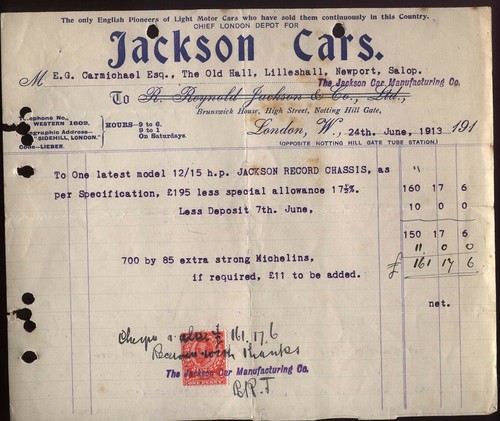 The only English Pioneers of Light Motor Cars who have sold them continuously in this Country.
CHIEF LONDON DEPOT FOR
Jackson Cars.
M E.G. Carmichael Esq., The Old Hall, Lilleshall, Newport, Salop.
The Jackson Car Manufacturing Co.
To R. Reynold Jackson & Co., Ltd.,
Brunswick House, High Street, Notting Hill Gate,
Telephone No.
WESTERN 1602.
Telegraphic Address—
"SIDEHILL, LONDON."
Code—LIEBER.
HOURS—9 to 6.
9 to 1
On Saturdays.
London, W., 24th June, 1913 191
(OPPOSITE NOTTING HILL GATE TUBE STATION.)
To One latest model 12/15 h.p. JACKSON RECORD CHASSIS, as
per Specification, £195 less special allowance 17½%. 160 17 6
Less Deposit 7th June, 10 0 0
150 17 6
11 0 0
£ 161 17 6
700 by 85 extra strong Michelins,
if required, £11 to be added.
net.
£ 161.17.6
with thanks
The Jackson Car Manufacturing Co.
ONE PENNY